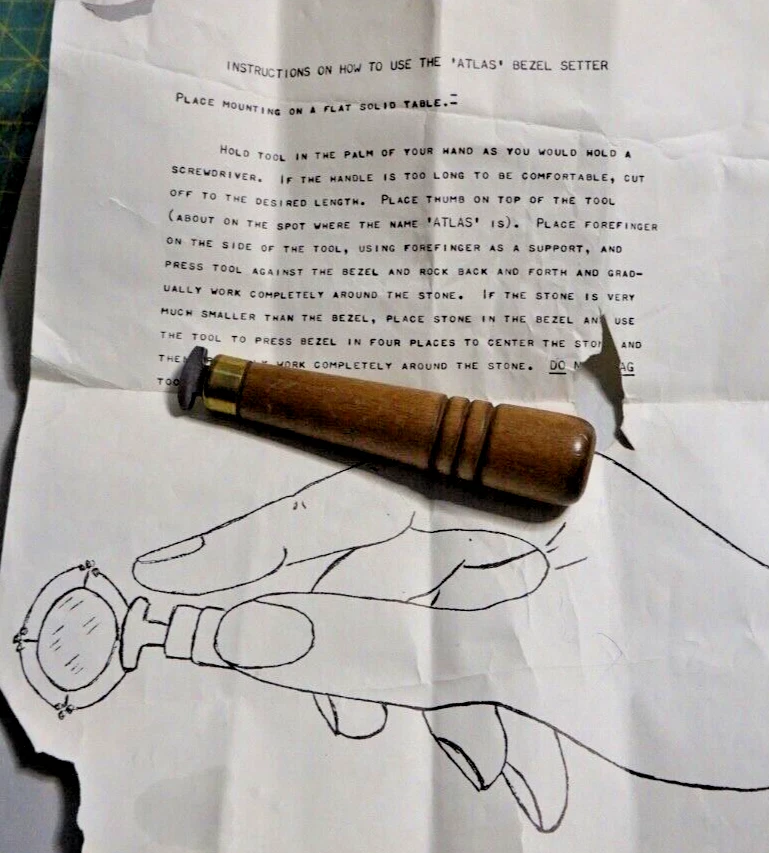 INSTRUCTIONS ON HOW TO USE THE 'ATLAS' BEZEL SETTER
PLACE MOUNTING ON A FLAT SOLID TABLE.=
HOLD TOOL IN THE PALM OF YOUR HAND AS YOU WOULD HOLD A
SCREWDRIVER. IF THE HANDLE IS TOO LONG TO BE COMFORTABLE, CUT
OFF TO THE DESIRED LENGTH. PLACE THUMB ON TOP OF THE TOOL
(ABOUT ON THE SPOT WHERE THE NAME 'ATLAS' IS). PLACE FOREFINGER
ON THE SIDE OF THE TOOL, USING FOREFINGER AS A SUPPORT, AND
PRESS TOOL AGAINST THE BEZEL AND ROCK BACK AND FORTH AND GRAD-
UALLY WORK COMPLETELY AROUND THE STONE. IF THE STONE IS VERY
MUCH SMALLER THAN THE BEZEL, PLACE STONE IN THE BEZEL AND USE
THE TOOL TO PRESS BEZEL IN FOUR PLACES TO CENTER THE AND
WORK COMPLETELY AROUND THE STONE. DO